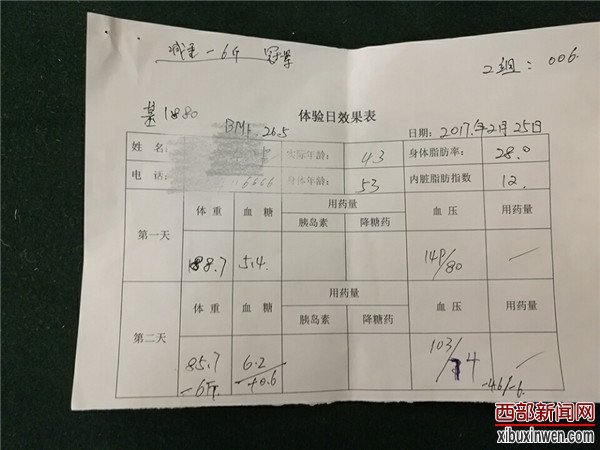 减重-6斤 冠军
2组：006.
基1880 BMI 26.5 体验日效果表 日期：2017.年2月25日
姓 名： 实际年龄： 43 身体脂肪率： 28.0
电 话： 6666 身体年龄： 53 内脏脂肪指数 12.
第一天 体 重 血 糖 用药量 血 压 用药量
胰岛素 降糖药
88.7 5.4. 149/80 /
第二天 体 重 血 糖 用药量 血 压 用药量
胰岛素 降糖药
85.7 6.2 103/74 /
-6斤 +0.6 -46/-6
西部新闻网
xibuxinwen.com